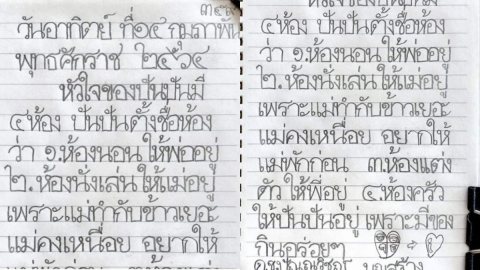 ๓๙
วันอาทิตย์ ที่๑๔ กุมภาพัน
พุทธศักราช ๒๕๖๔
หัวใจของปันปันมี
๔ห้อง ปันปันตั้งชื่อห้อง
ว่า ๑.ห้องนอน ให้พ่ออยู่
๒.ห้องนั่งเล่น ให้แม่อยู่
เพราะแม่ทำกับข้าวเยอะ
แม่คงเหนื่อย อยากให้
แม่พักก่อน ๓.ห้องแต่ง
หัวใจของปันปันมี
๔ห้อง ปันปันตั้งชื่อห้อง
ว่า ๑.ห้องนอน ให้พ่ออยู่
๒.ห้องนั่งเล่น ให้แม่อยู่
เพราะแม่ทำกับข้าวเยอะ
แม่คงเหนื่อย อยากให้
แม่พักก่อน ๓.ห้องแต่ง
ตัว ให้พี่อยู่ ๔.ห้องครัว
ให้ปันปันอยู่ เพราะมีของ
กินอร่อยๆ